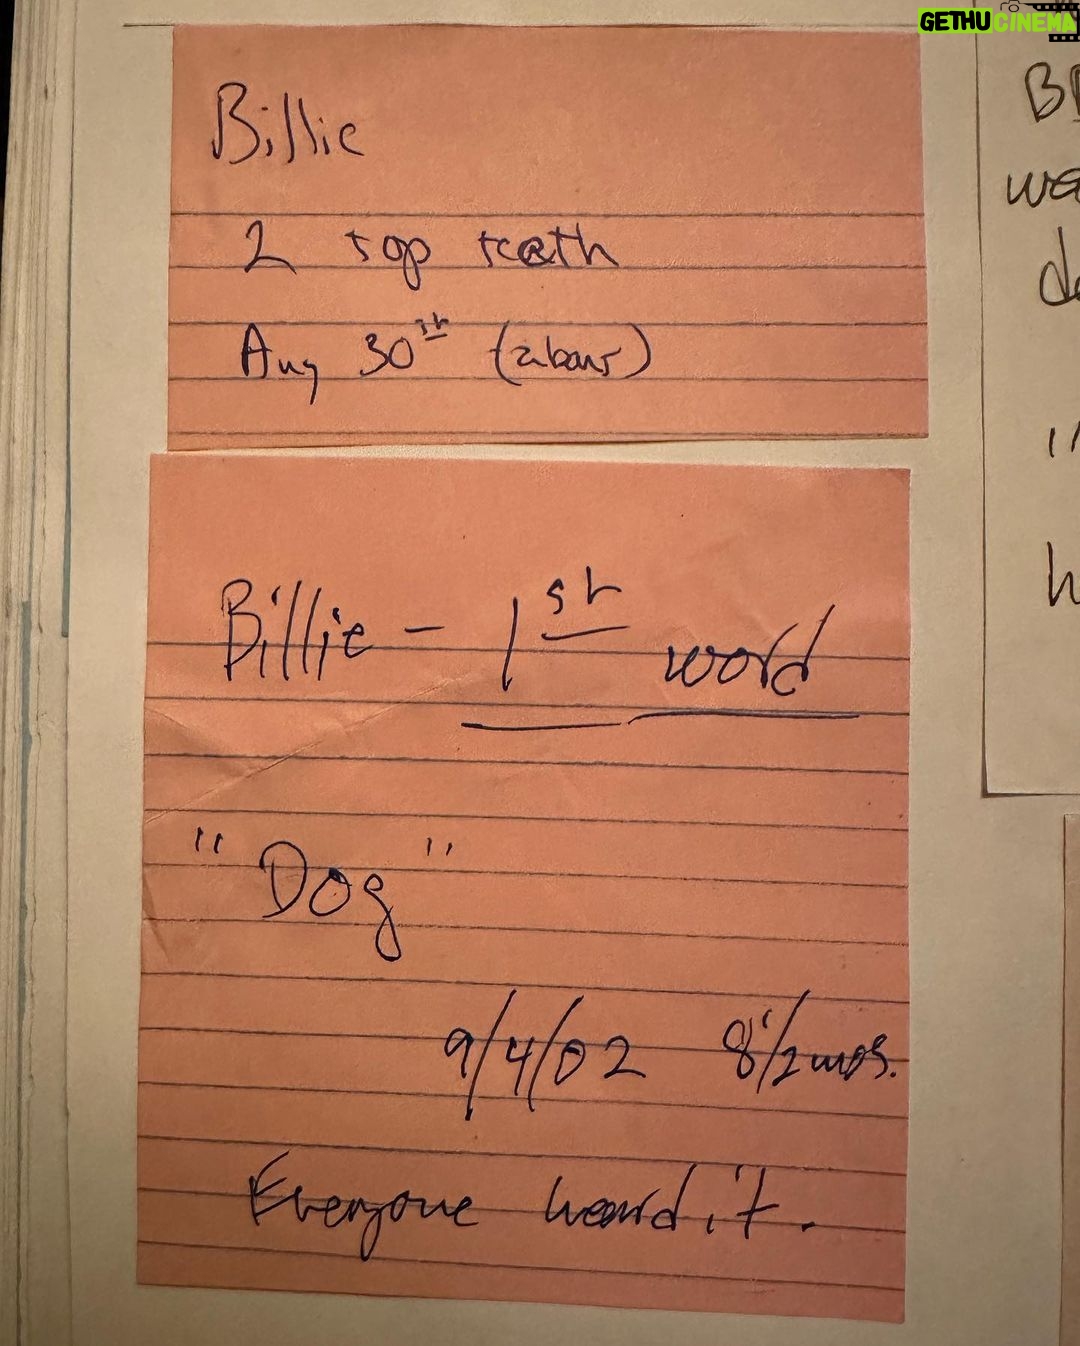 GETHU CINEMA
Billie
2 top teeth
Aug 30th (about)
Billie - 1st word
"Dog"
9/4/02 8 1/2 mos.
Everyone heard it.